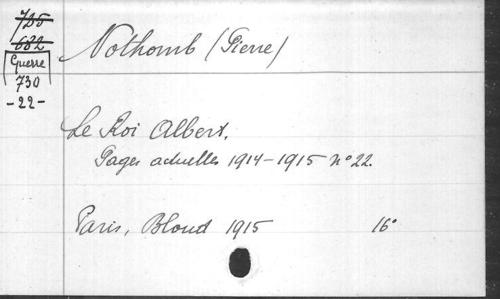 735
682
Guerre
730
-22-
Nothomb (Pierre)
Le Roi Albert.
Pages actuelles 1914-1915 n° 22.
Paris, Bloud 1915 16°